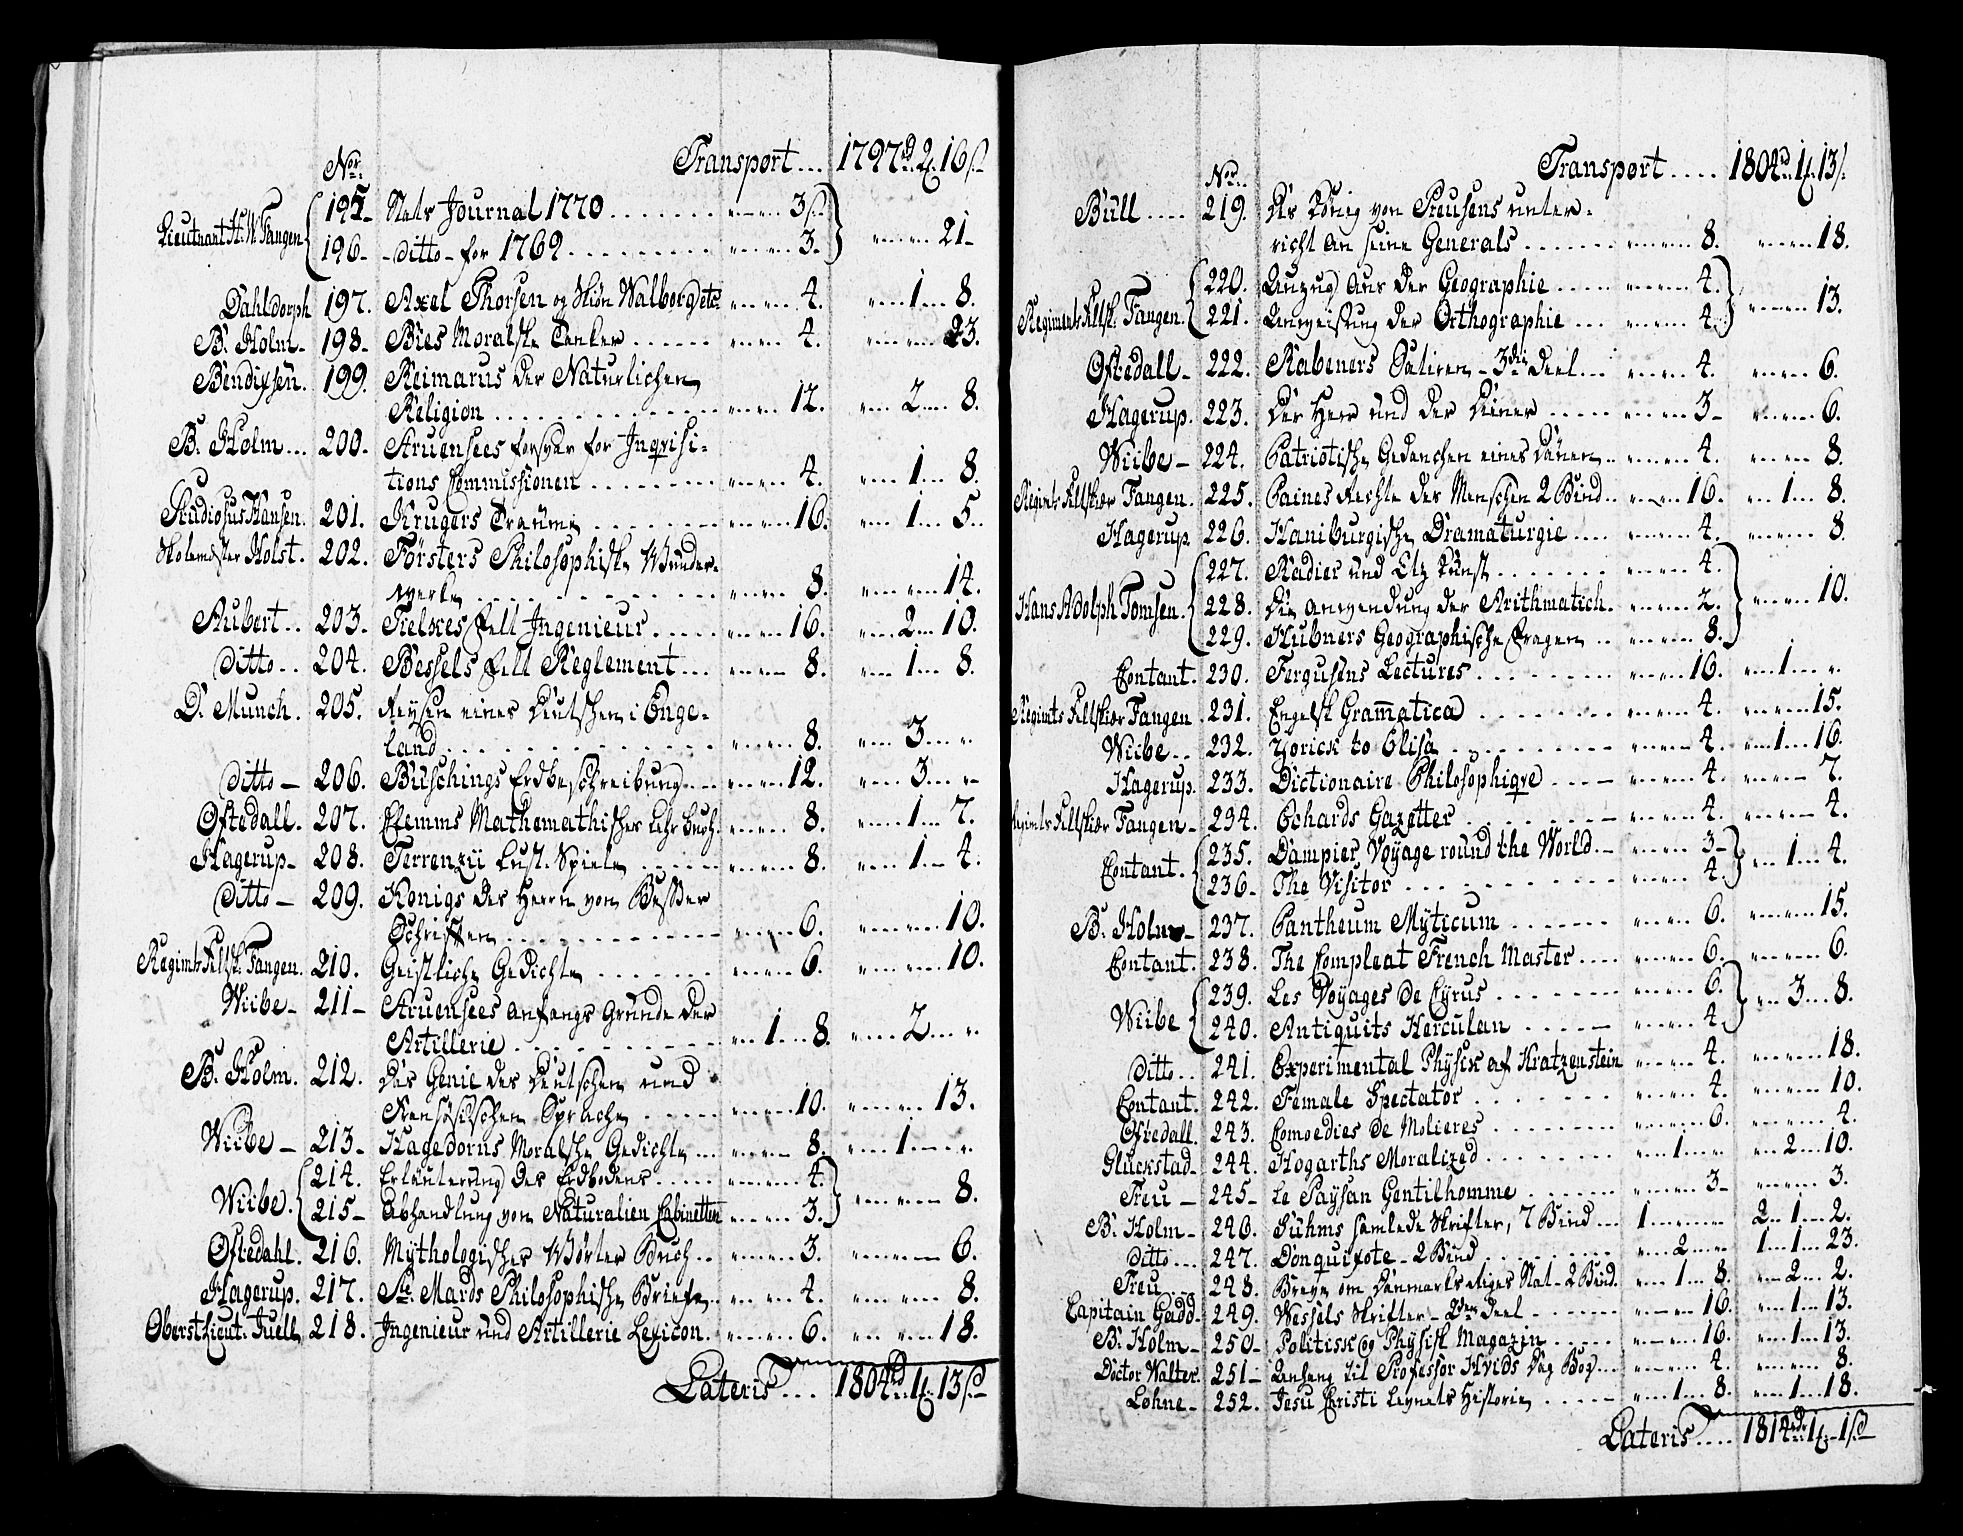 Transport... 1797rd. 2. 16 s
Nor.
195- Stats Journal 1770 ....... " " 3 s.
Lieutnant H. W. Fangen " " 21-
196- -ditto- for 1769 ......... " " 3.
Dahldorph 197. Axel Thorsen og Skiön Walborg etc. " " 4. " 1 8.
B. Holm- 198- Bies Moralske Tanker ...... " " 4. " " 23.
Bendixsen. 199. Reimarus der Naturlichen
Religion ............... " " 12. " 2 8.
B. Holm... 200. Struensees forsvar for Inqvisi-
tions Commissionen ........ " " 4. " 1 8.
Studiosus Hansen. 201. Krugers Traüme ........ " " 16. " 1 5.
Skolemester Holst. 202. Försters Philosophiske Wunder-
werke .............. " " 8. " " 14.
Aubert.. 203. Fielxes Felt Ingenieur ..... " " 16. " 2 10.
ditto.. 204. Bessels Felt Reglement ... " " 8. " 1 8.
D. Munch. 205. Reysen eines Deutschen i Enge-
land ................ " " 8. " 3 "
ditto- 206. Büschings Erdbeschreibung ... " " 12. " 3 "
Oftedall. 207. Clemms Mathemathisches Lehr Buch. " " 8. " 1 7.
Hagerup- 208. Terrenzii Lust-Spiele ..... " " 8. " 1 4.
ditto- 209. Königs des Herrn von Besser
Schriften ............ " " 6. " " 10.
Regimts Feltsk. Fangen. 210. Geistliche Gedichte ....... " " 6. " " 10.
Wiibe- 211- Struensees Anfangs Grunde der
Artillerie ............ " 1 8. " 2 "
B. Holm. 212. Das Genie der Deutschen und
Fransösischen Sprache ..... " " 10. " " 13.
Wiibe- 213- Hagedorns Moralsche Gedichte ... " " 8. " 1 "
214. Erläuterung des Erdbodens ..... " " 4.
Wiibe. " " 8.
215- Abhandlung von Naturalien Cabinetten " " 3.
Oftedahl. 216. Mythologisches Wörter Buch .. " " 3. " " 6.
Hagerup. 217. St. Mards Philosophische Briefe.. " " 4. " " 8.
Oberstlieut. Juell 218. Ingenieur und Artillerie Lexicon. " " 6. " " 18.
Lateris... 1804rd. 1. 13 s
Transport .... 1804rd. 1. 13 s.
Nor.
Bull.... 219. Des König von Preusens unter-
richt an seine Generals ...... " " 8. " " 18.
220. Auszug Aus der Geographie ..... " " 4.
Regiments Feltsk. Fangen. " " 13.
221. Anweisung der Orthographie ... " " 4.
Oftedall- 222. Rabeners Satiren - 3die Deel ... " " 4. " " 6.
Hagerup. 223. Der Herr und der Diener ..... " " 3- " " 6.
Wiibe- 224. Patriotische Gedanchen eines Dänen.. " " 4. " " 8.
Regimts Feltskier Fangen. 225. Paines Rechte der Menschen 2 Bind.. " " 16. " 1 8.
Hagerup. 226. Hamburgische Dramaturgie .... " " 4. " " 8.
227. Radier und Etz Kunst ....... " " 4.
Hans Adolph Tomsen. 228. Die Anwendung der Arithmatich. " " 2. " " 10.
229. Hubners Geographische Fragen .. " " 8.
Contant. 230. Fergusens Lectures ........ " " 16. " 1 "
Regimts Feltskier Fangen 231. Engelsk Gramatica ........ " " 4. " " 15.
Wiibe.. 232. Yorick to Elisa ......... " " 4. " 1 16.
Hagerup. 233. Dictionaire Philosophiqve ... " " 4. " " 7.
Regimts Feltskier Fangen- 234. Echards Gazetter ......... " " 4. " " 4.
235. Dampier Voyage round the World.. " " 3-
Contant. " 1 4.
236- The Visitor ............ " " 4.
B. Holm- 237. Pantheum Myticum ...... " " 6. " " 15.
Contant. 238. The Compleat French Master .... " " 6. " " 6.
239. Les Voyages de Cyrus ....... " " 6.
Wiibe " 3 8.
240. Antiquits Herculan ...... " " 4.
ditto.. 241. Experimental Physik af Kratzenstein " " 4. " " 18.
Contant. 242. Female Spectator ........ " " 4. " " 10.
Oftedall. 243. Comoedies de Molieres ........ " " 6. " " 4.
Gluckstad- 244. Hogarths Moralized ........ " 1 " " 2 10.
Treu- 245- Le Paysan Gentilhomme ...... " " 3- " " 3.
B. Holm- 246. Suhms samlede Skrifter, 7 Bind ... 1 " " 2 1 2.
ditto... 247. Donquixote - 2 Bind ........ " 2 " 1 1 23.
Treu.. 248. Breve om Danmarks Riges Stat - 2 Bind. " 1 8. " 2 2.
Capitain Gadd- 249. Wessels Skrifter - 2den Deel ..... " " 16. " 1 13.
B. Holm- 250- Politisk og Physisk Magazin ..... " " 16. " 1 13.
Doctor Walter. 251- Anhang til Professor Hvids Dag Bog ... " " 4. " " 8.
Lohne- 252. Jesu Christi Levnets Historie ..... " 1 8. " 1 18.
Lateris.... 1814rd. 1. 1 s